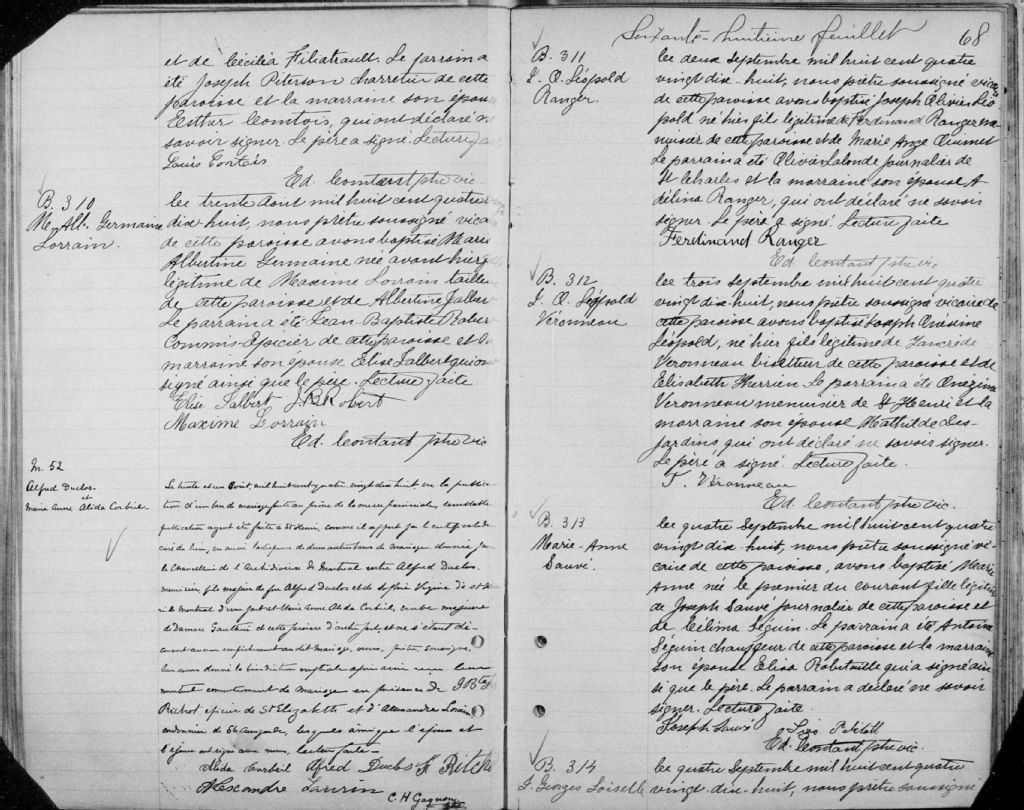 et de Cécilia Filiatrault. Le parrain a
été Joseph Piterson charretier de cette
paroisse et la marraine son épou
Esther Comtois, qui ont déclaré n
savoir signer. Le père a signé. Lecture fai
Louis Contois
Ed. Contant ptre vic.
B. 310
M. Alb. Germaine
Lorrain.
Le trente aout mil huit cent quatre
dix-huit, nous prêtre soussigné vica
de cette paroisse avons baptisé Marie
Albertine Germaine née avant hier
légitime de Maxime Lorrain taille
de cette paroisse et de Albertine Jalber
Le parrain a été Jean-Baptiste Rober
Commis Epicier de cette paroisse et l
marraine son épouse Elise Jalbert qui on
signé ainsi que le père. Lecture faite
Elise Jalbert J. B. Robert
Maxime Lorrain
Ed. Contant ptre vic
M. 52
Alfred Duclos
et
Marie Anne Alida Corbeil.
Le trente et un Août, mil huit cent quatre vingt dix huit vu la publica
tion d'un ban de mariage faite au prône de la messe paroissiale, semblable
publication ayant été faite à St Henri, comme il appert par le certificat du
curé du lieu, vu aussi la dispense de deux autres bans de mariage donnée par
la Chancellerie de l'Archidiocèse de Montréal entre Alfred Duclos
menuisier fils majeur de feu Alfred Duclos et de
de Montréal d'une part et Marie Anne Alida Corbeil,
de Damase Gauthier de cette paroisse d'autre part, et ne s'étant dé-
couvert aucun empêchement au dit mariage, nous, prêtre, soussigné,
leur avons donné la bénédiction nuptiale après avoir reçu leur
mutuel consentement de mariage en présence de J Bte F
Richot épicier de St Elizabeth et d'Alexandre Lorain
cordonnier de St Cunégonde, lesquels ainsi que l'époux et
l'épouse ont signé avec nous, lecture faite.
Alida Corbeil Alfred Duclos F Ritcho
Alexandre Laurin
C. H Gagnon
Soixante-huitième feuillet 68
B. 311
J. O. Léopold
Ranger.
Le deux Septembre mil huit cent quatre
vingt dix-huit, nous prêtre soussigné vicai
de cette paroisse avons baptisé Joseph Olivier Léo
pold né hier fils légitime de Ferdinand Ranger me
nuisier de cette paroisse et de Marie Ange Ouimet
Le parrain a été Olivier Lalonde journalier de
St Charles et la marraine son épouse A
délina Ranger, qui ont déclaré ne savoir
signer. Le père a signé. Lecture faite
Ferdinand Ranger
Ed Contant ptre vic.
B. 312
J. O. Léopold
Véronneau
Le trois Septembre mil huit cent quatre
vingt dix-huit, nous prêtre soussigné vicaire de
cette paroisse avons baptisé Joseph Onésime
Léopold, né hier fils légitime de Tancrède
Veronneau de cette paroisse et de
Elisabeth Therrien. Le parrain a été Onezime
Veronneau menuisier de St Henri et la
marraine son épouse Mathilde Des-
jardins qui ont déclaré ne savoir signer.
Le père a signé. Lecture faite.
T. Véronneau
Ed. Contant ptre vic.
B. 313
Marie-Anne
Sauvé.
Le quatre Septembre mil huit cent quatre
vingt dix-huit, nous prêtre soussigné vi-
caire de cette paroisse, avons baptisé Marie
Anne né le premier du courant fille légitim
de Joseph Sauvé journalier de cette paroisse et
de Célima Séguin. Le parrain a été Antoine
Séguin chauffeur de cette paroisse et la marraine
son épouse Elisa Robitaille qui a signé ain
si que le père. Le parrain a déclaré ne savoir
signer. Lecture faite.
Joseph Sauvé
Ed. Contant ptre vic.
B. 314
J. Georges Loiselle
Le quatre Septembre mil huit cent quatre
vingt-dix-huit, nous prêtre soussigné